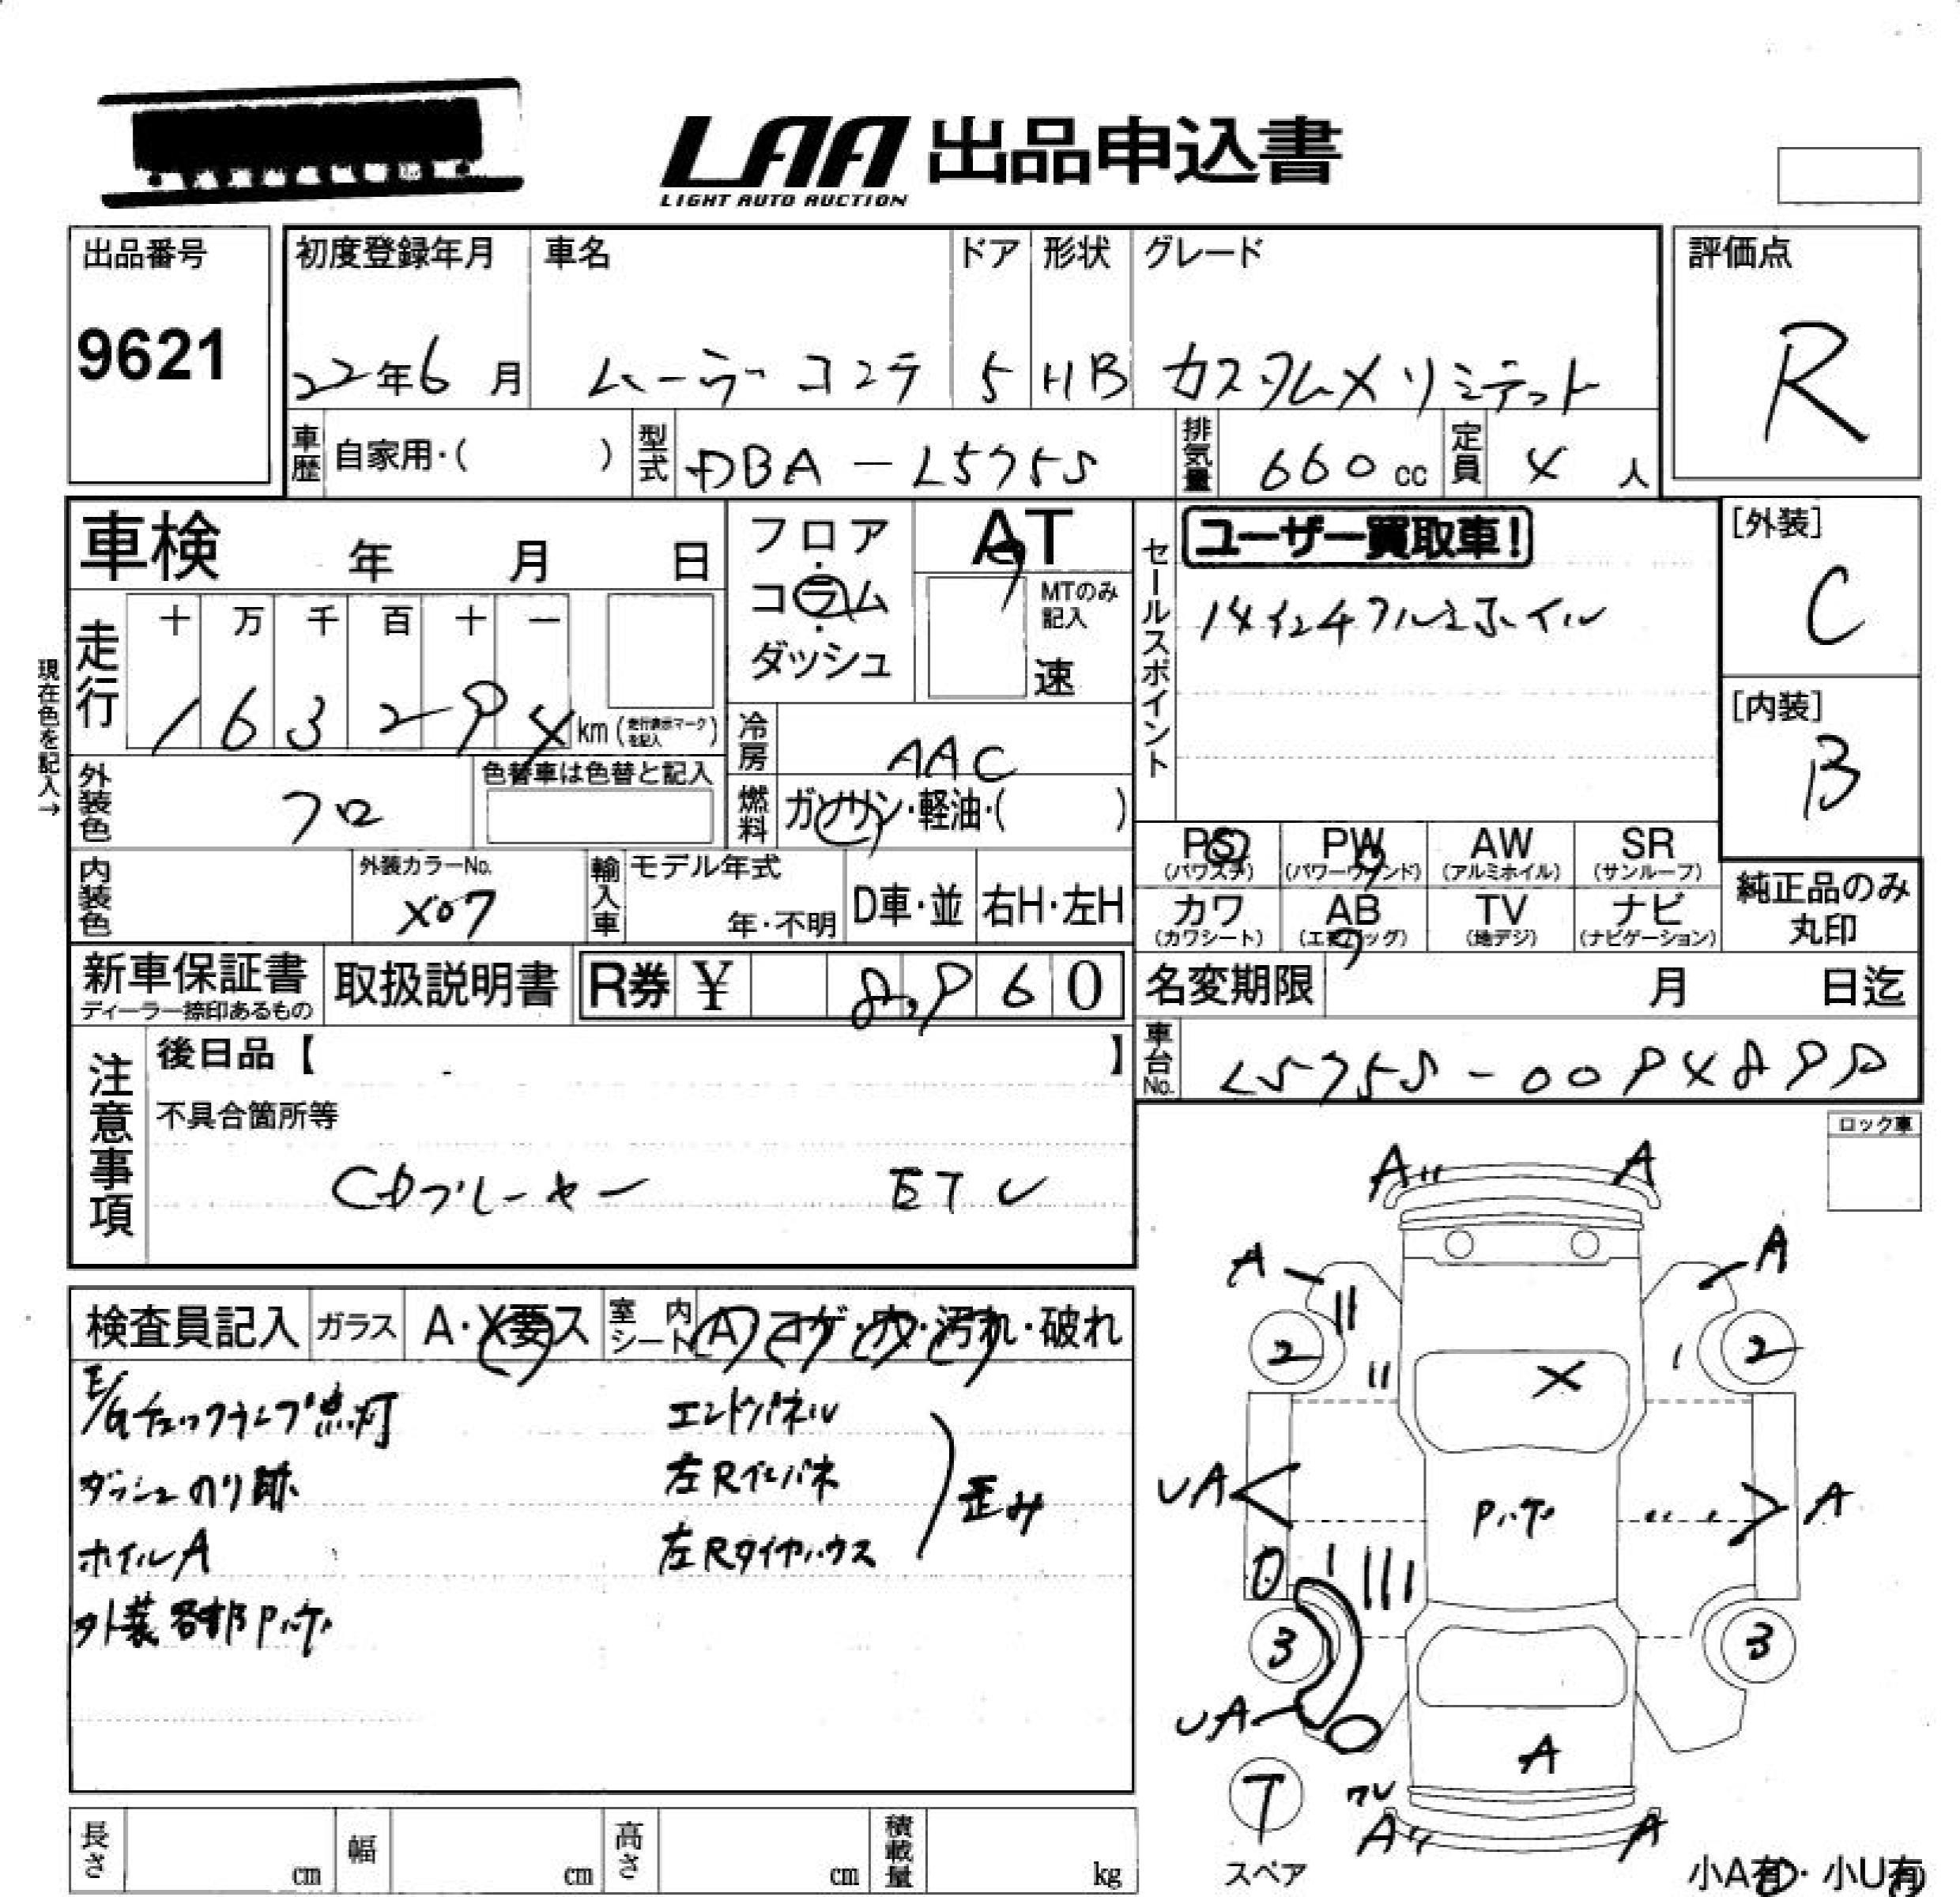 LAA 出品申込書
LIGHT AUTO AUCTION
出品番号
9621
初度登録年月 車名 ドア 形状 グレード
22年6月 ムーヴ コンテ 5 HB カスタムX リミテッド
評価点
R
車歴 自家用・( ) 型式 DBA-L575S 排気量 660cc 定員 4人
車検 年 月 日
フロア・コラム・ダッシュ
AT
MTのみ記入
速
セールスポイント
ユーザー買取車!
14インチアルミホイル
[外装]
C
[内装]
B
現在色を記入→
走行 十 万 千 百 十 一
1 6 3 2 9 4 km (走行表示マークを記入)
冷房 AAC
外装色 クロ
色替車は色替と記入
燃料 ガソリン・軽油・( )
内装色
外装カラーNo.
X07
輸入車 モデル年式
年・不明 D車・並 右H・左H
PS (パワステ) PW (パワーウィンド) AW (アルミホイル) SR (サンルーフ)
カワ (カワシート) AB (エアバッグ) TV (地デジ) ナビ (ナビゲーション)
純正品のみ
丸印
新車保証書
ディーラー捺印あるもの
取扱説明書 R券 ¥ 8,960
名変期限 月 日迄
車台No. L575S-0094898
注意事項
後日品【 】
不具合箇所等
CDプレーヤー ETC
ロック車
検査員記入 ガラス A・X要ス 室内シート A コゲ・穴・汚れ・破れ
E/Gチェックランプ点灯 エンドパネル
ダッシュのり跡 左Rインパネ 歪み
ホイルA 左Rタイヤハウス
外装各部Pハゲ
A A
A A
2 2
X
UA A
Pハゲ
3 3
UA
A
T
スペア
A A
小A有・小U有
長さ cm 幅 cm 高さ cm 積載量 kg